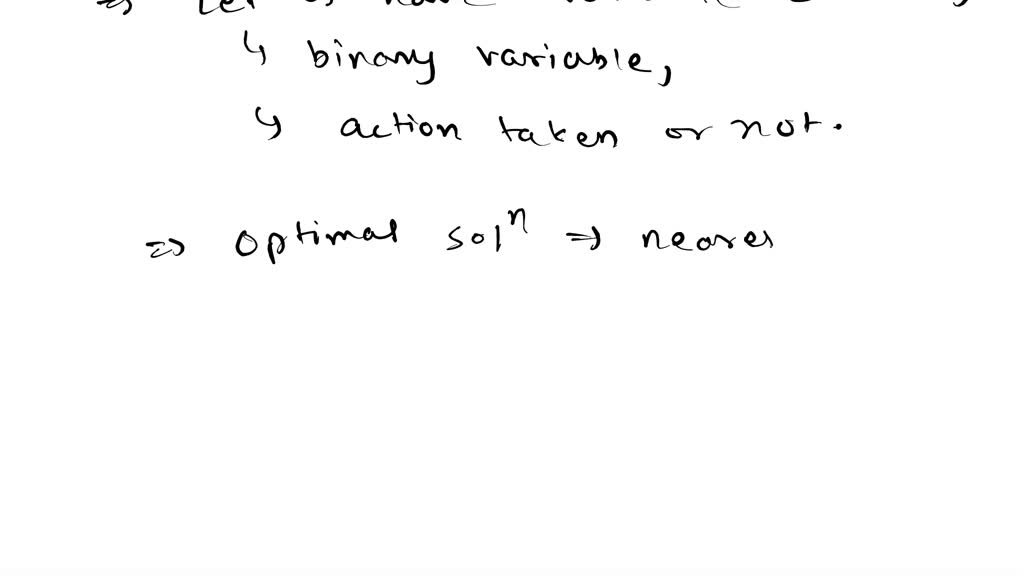 ⇒ Let us have
↳ binary variable,
↳ action taken or not.
⇒ optimal solⁿ ⇒ neares